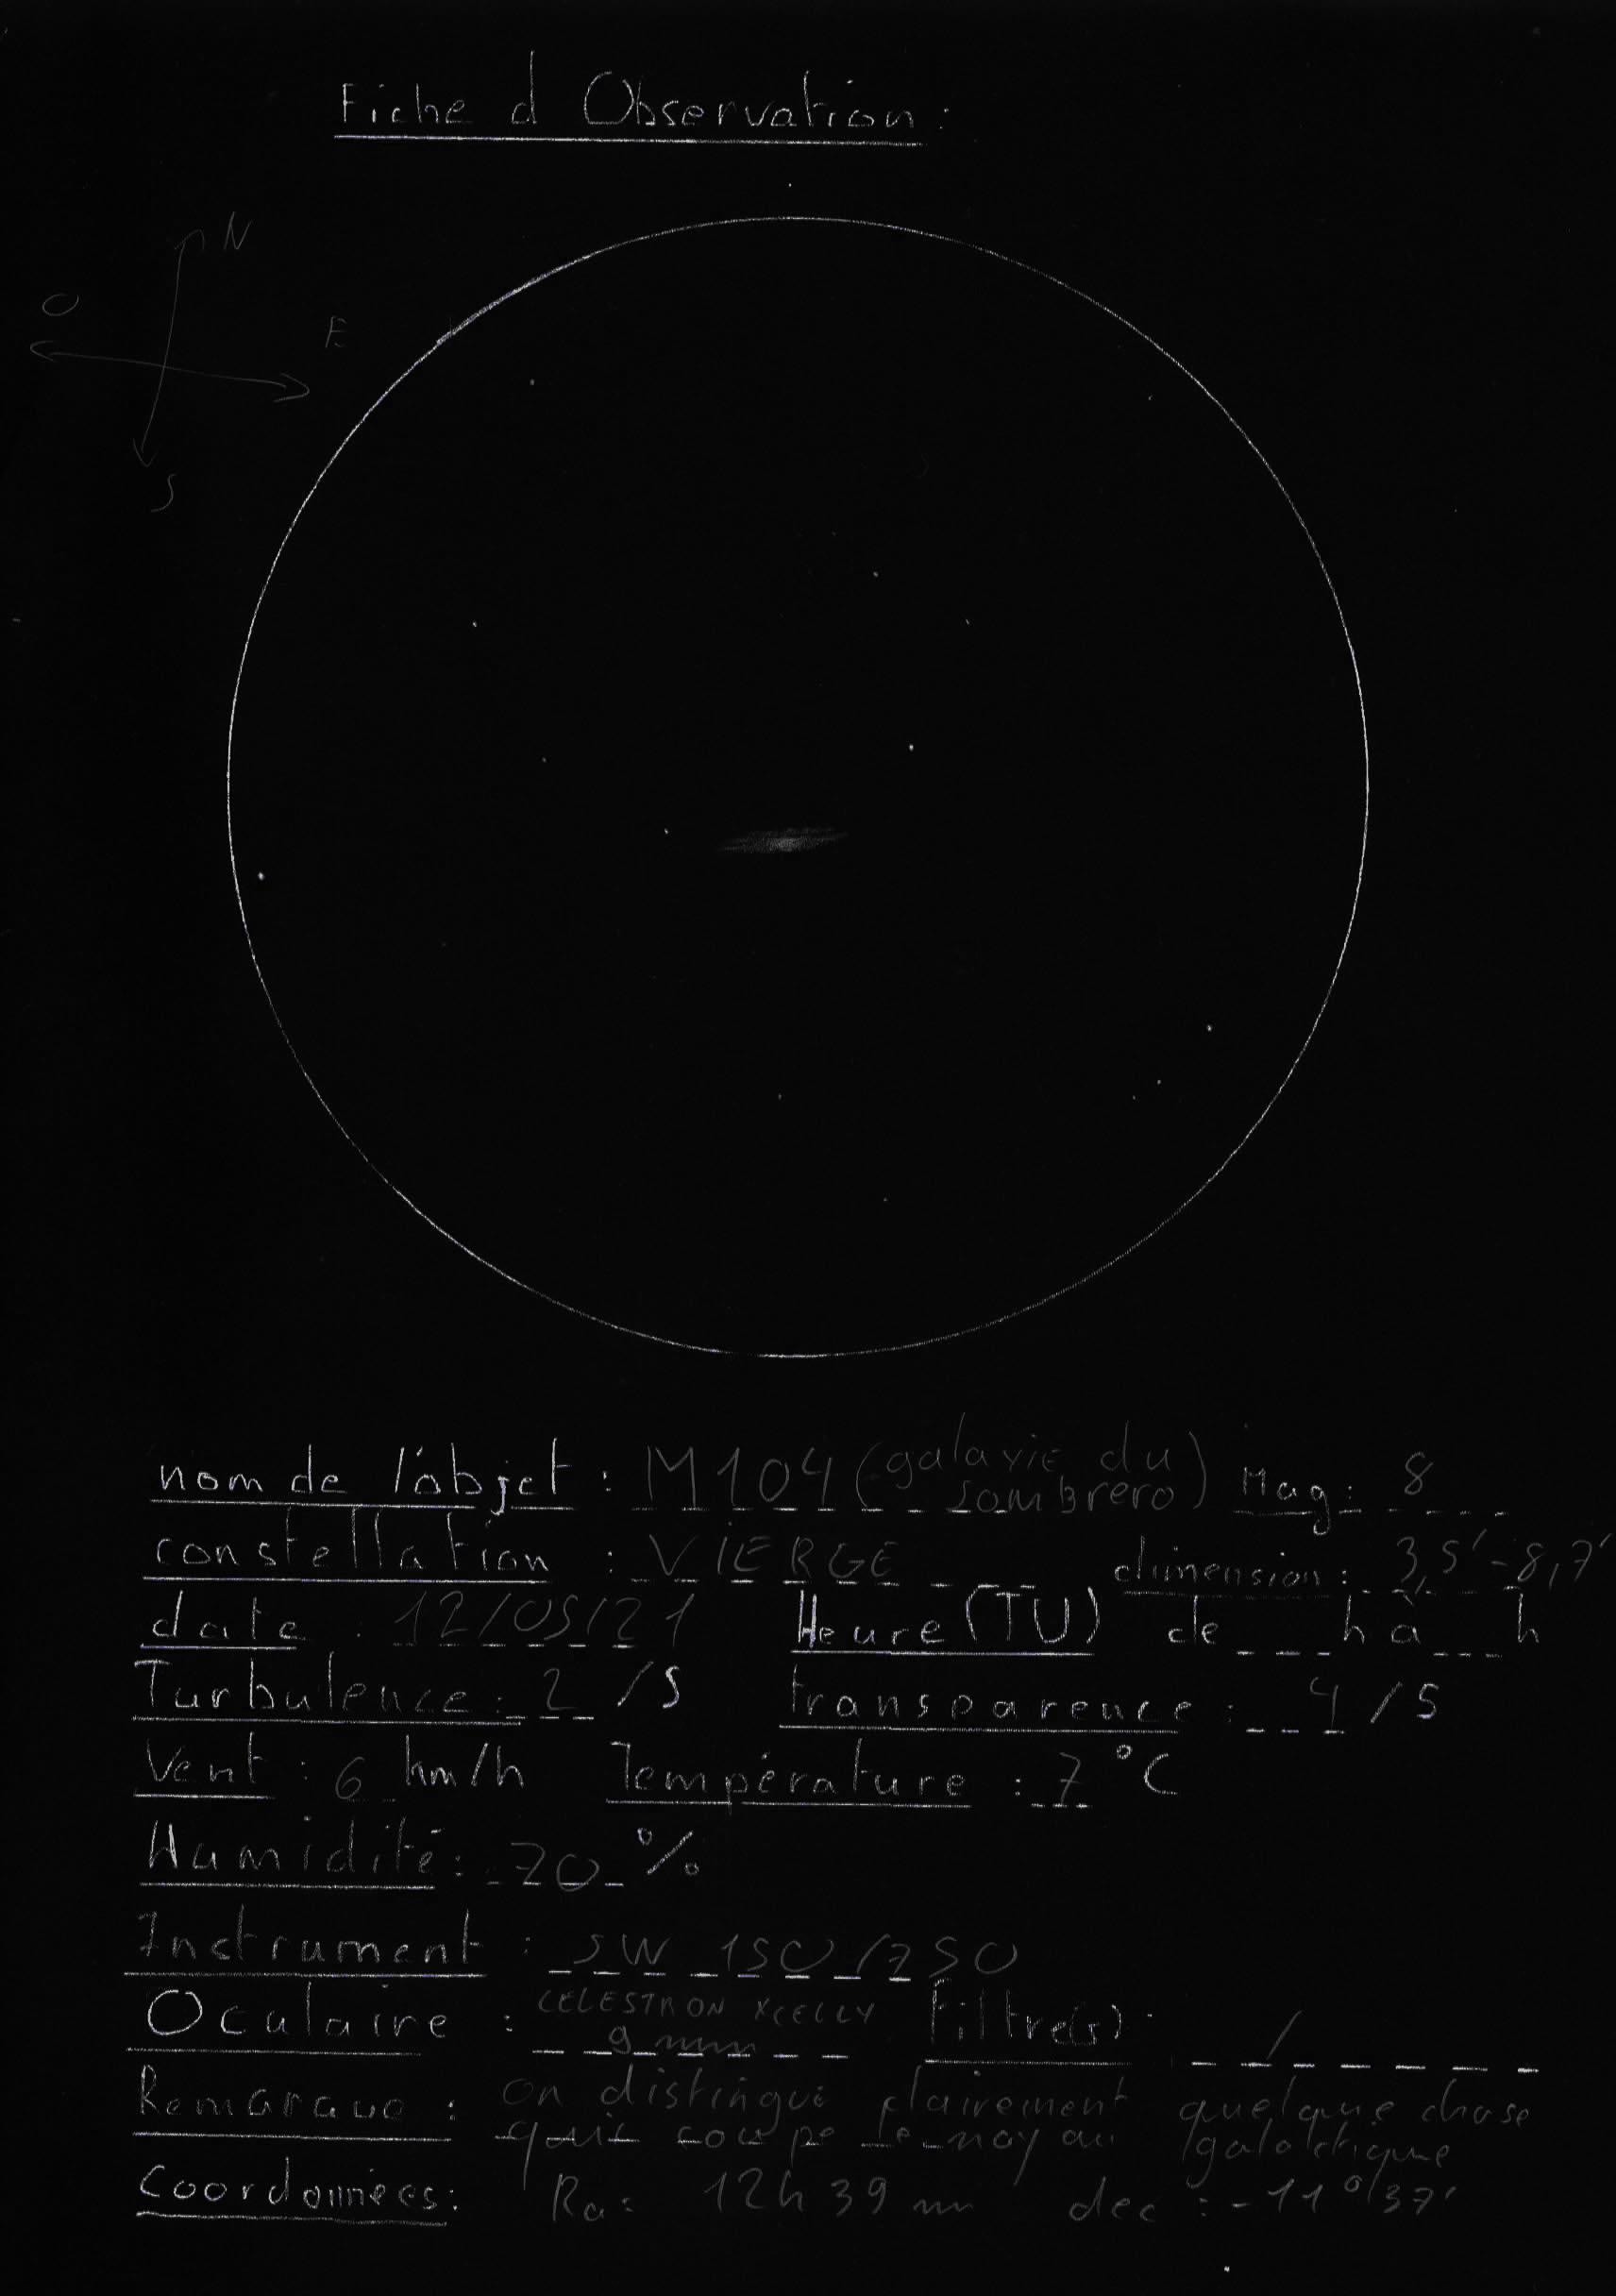 Fiche d Observation :
N
O
E
S
nom de l'objet : M104 (galaxie du sombrero) Mag : 8
constellation : VIERGE dimension : 3,5' - 8,7'
date : 12/05/21 Heure (TU) de h à h
Turbulence : 2 /5 transparence : 4 /5
Vent : 6 km/h Température : 7 °C
Humidité : 70 %
Instrument : SW 150/750
Oculaire : CELESTRON XCELLY 9 mm filtre(s) : /
Remarque : on distingue clairement quelque chose
qui coupe le noyau galactique
Coordonnées : Ra : 12h 39 m dec : -11° 37'